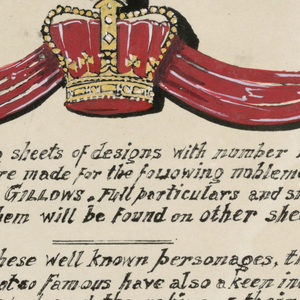 sheets of designs with number
re made for the following noblem
GILLOWS. Full particulars and s
hem will be found on other she
hese well known personages, th
famous have also a keen in